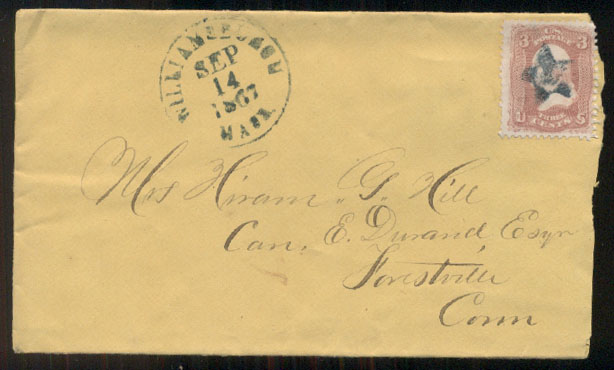 WILLIAMSBURGH
SEP
14
1867
MASS.
3 U.S. POSTAGE 3
U THREE CENTS S
Mrs Hiram. G. Hill
Care, E. Durand, Esqr
Forestville
Conn